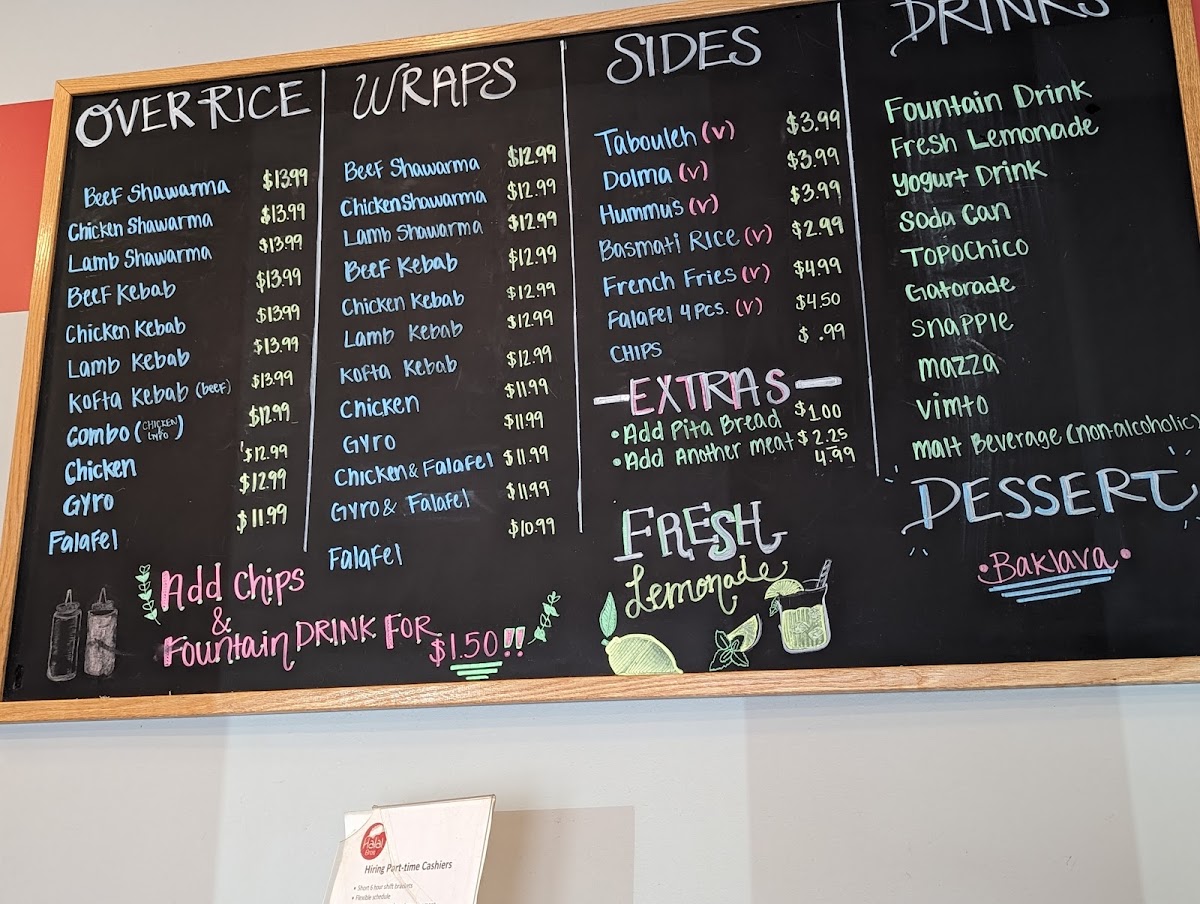 OVER RICE
Beef Shawarma $13.99
Chicken Shawarma $13.99
Lamb Shawarma $13.99
Beef Kebab $13.99
Chicken Kebab $13.99
Lamb Kebab $13.99
Kofta Kebab (beef) $13.99
Combo (CHICKEN GYRO) $12.99
Chicken $12.99
Gyro $12.99
Falafel $11.99
WRAPS
Beef Shawarma $12.99
Chicken Shawarma $12.99
Lamb Shawarma $12.99
Beef Kebab $12.99
Chicken Kebab $12.99
Lamb Kebab $12.99
Kofta Kebab $12.99
Chicken $11.99
Gyro $11.99
Chicken & Falafel $11.99
Gyro & Falafel $11.99
Falafel $10.99
Add Chips
&
Fountain DRINK FOR $1.50!!
SIDES
Tabouleh (v) $3.99
Dolma (v) $3.99
Hummus (v) $3.99
Basmati Rice (v) $2.99
French Fries (v) $4.99
Falafel 4 pcs. (v) $4.50
CHIPS $ .99
EXTRAS
• Add Pita Bread $1.00
• Add Another meat $2.25
4.99
FRESH
Lemonade
DRINKS
Fountain Drink
Fresh Lemonade
Yogurt Drink
Soda Can
TOPOCHICO
Gatorade
Snapple
Mazza
Vimto
Malt Beverage (non-alcoholic)
DESSERT
• Baklava •
Halal
Hiring Part-time Cashiers
• Short 6 hour shift
• Flexible schedule